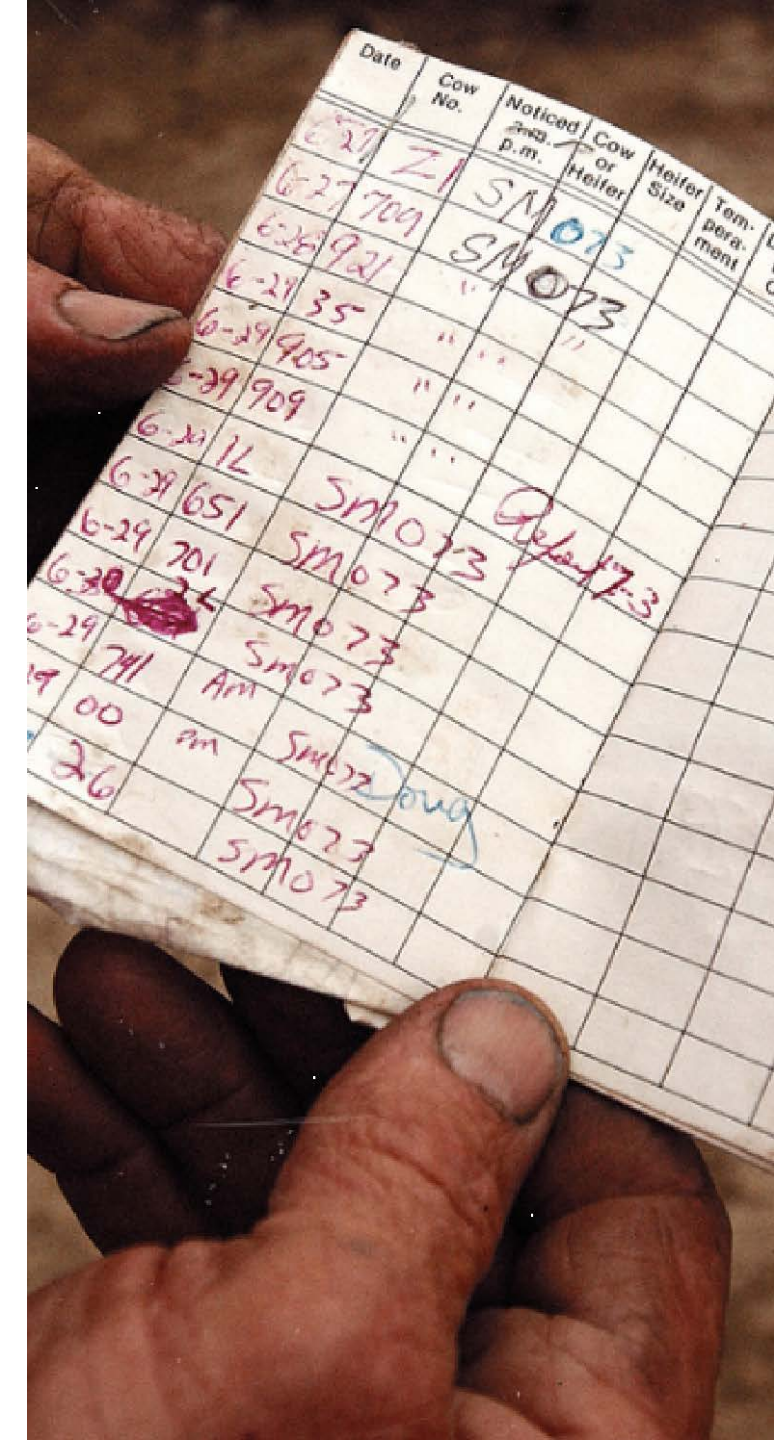 Date Cow No. Noticed a.m. p.m. Cow or Heifer Heifer Size Tem-pera-ment
6-27 Z1 SM073
6-27 709 SM073
6-28 921 "
6-29 35 " " "
6-29 905 " "
6-29 909 " "
6-29 1L SM073 Repeat 7-3
6-29 651 SM073
6-29 701 SM073
6-30 SM073
6-29 741 Am SM073
29 00 pm SM073 Doug
26 SM073